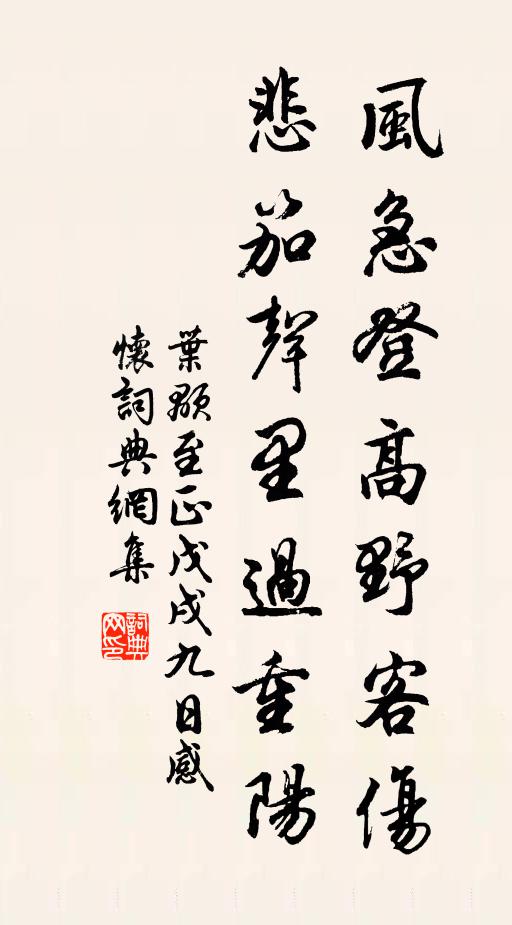 風急登高野客傷
悲笳聲里過重陽
葉顒至正戊戌九日感
懷詞典網集
詞典
网印